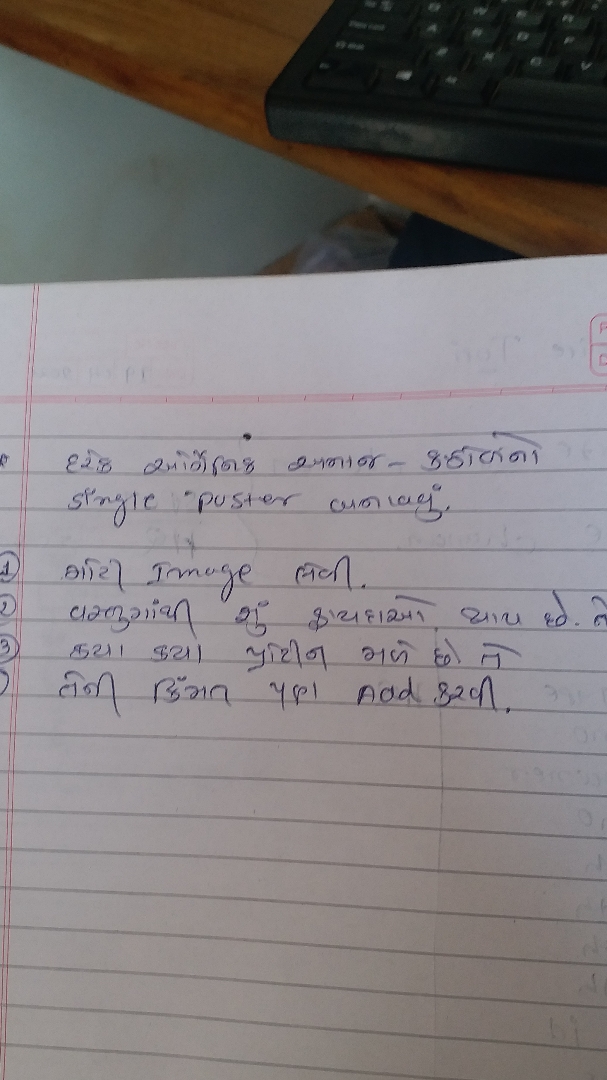 * દરેક ઓર્ગેનિક અનાજ - કઠોળનો
single poster બનાવવું.
① મોટી Image લેવી.
② વસ્તુમાંથી શું ફાયદાઓ થાય છે. તે
③ કયા કયા પ્રોટીન મળે છે તે
તેની કિંમત પણ Add કરવી.